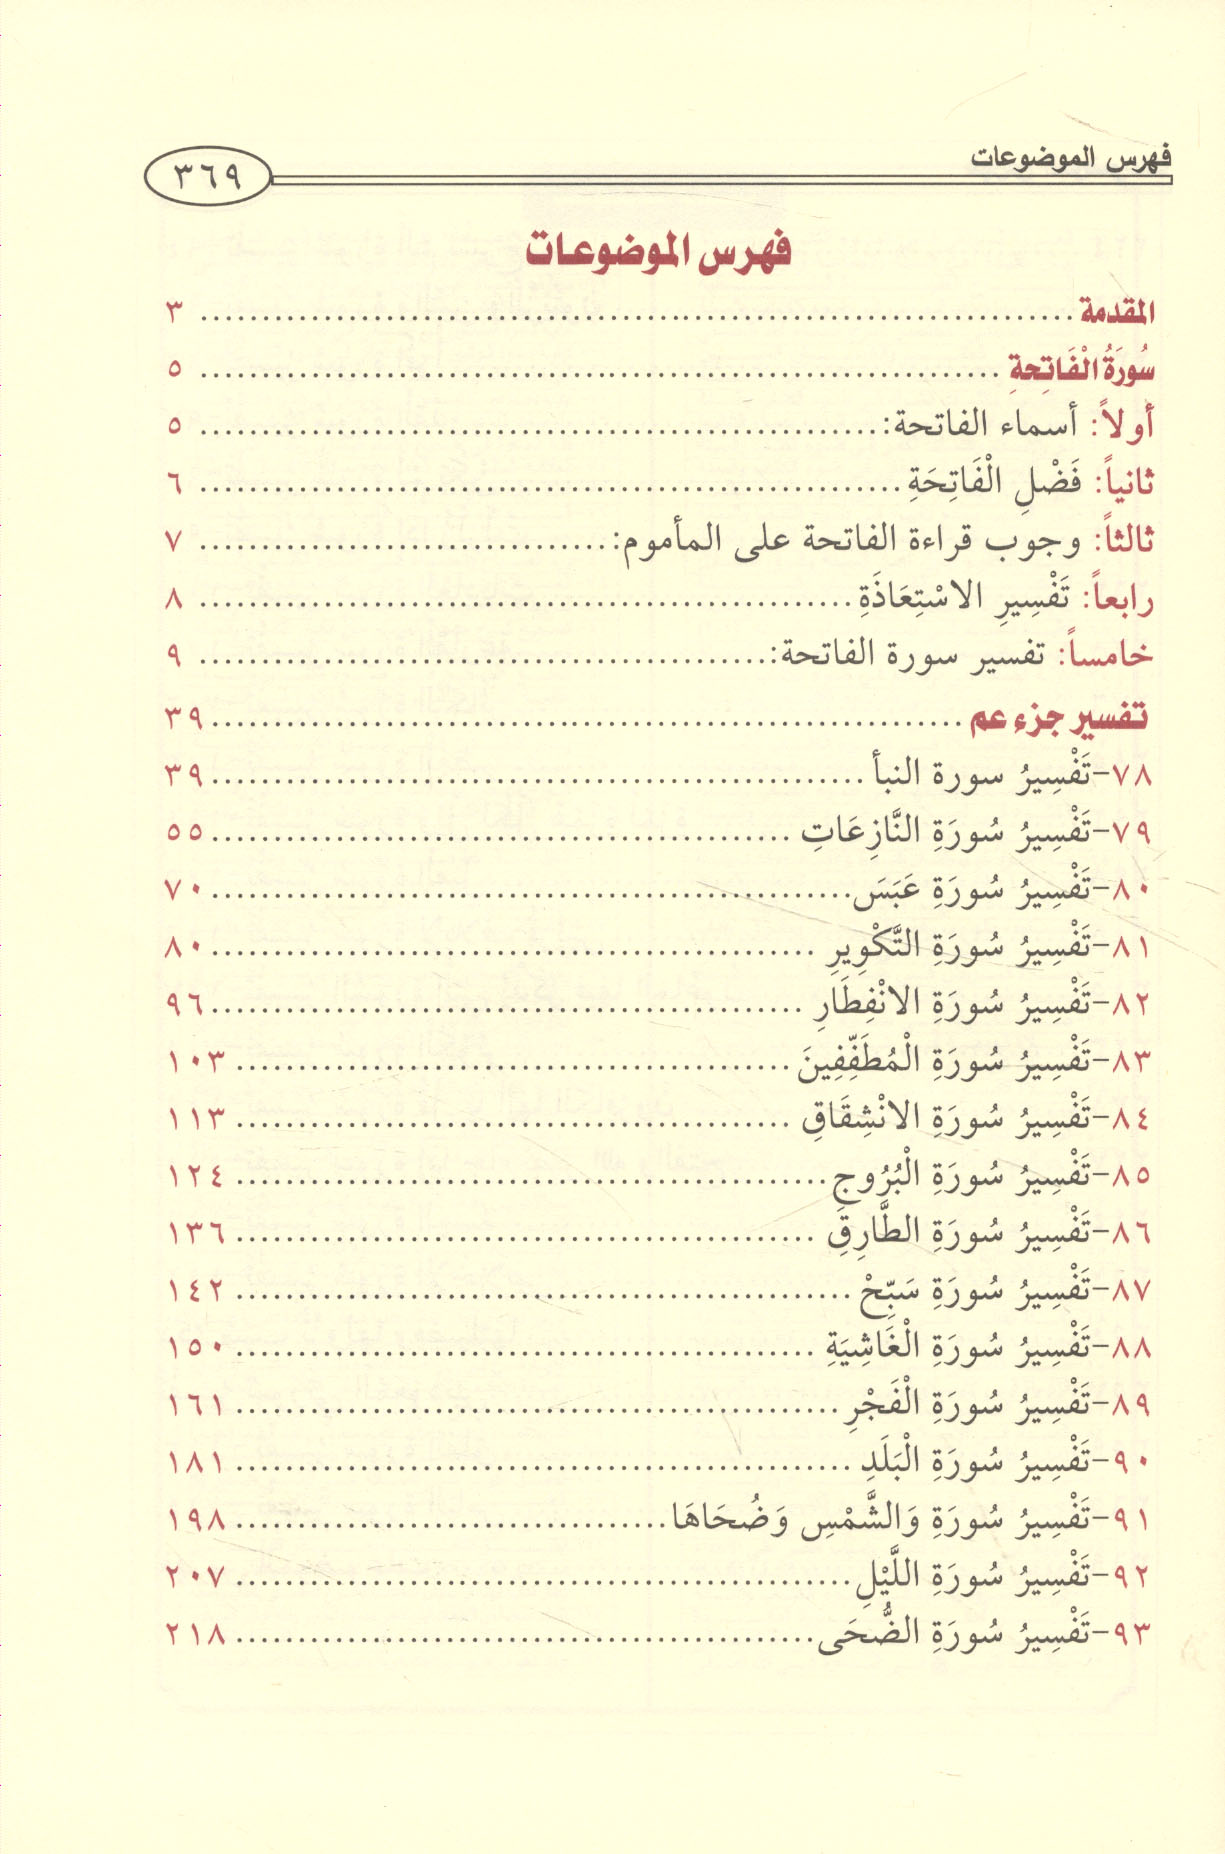 فهرس الموضوعات
٣٦٩
فهرس الموضوعات
المقدمة ........................................ ٣
سُورَةُ الْفَاتِحةِ ........................................ ٥
أولاً: أسماء الفاتحة: ........................................ ٥
ثانياً: فَضْلِ الْفَاتِحَةِ ........................................ ٦
ثالثاً: وجوب قراءة الفاتحة على المأموم: ........................................ ٧
رابعاً: تَفْسِيرِ الاسْتِعَاذَةِ ........................................ ٨
خامساً: تفسير سورة الفاتحة: ........................................ ٩
تفسير جزء عم ........................................ ٣٩
٧٨-تَفْسِيرُ سورة النبأ ........................................ ٣٩
٧٩-تَفْسِيرُ سُورَةِ النَّازِعَاتِ ........................................ ٥٥
٨٠-تَفْسِيرُ سُورَةِ عَبَسَ ........................................ ٧٠
٨١-تَفْسِيرُ سُورَةِ التَّكْوِيرِ ........................................ ٨٠
٨٢-تَفْسِيرُ سُورَةِ الانْفِطَارِ ........................................ ٩٦
٨٣-تَفْسِيرُ سُورَةِ الْمُطَفِّفِينَ ........................................ ١٠٣
٨٤-تَفْسِيرُ سُورَةِ الانْشِقَاقِ ........................................ ١١٣
٨٥-تَفْسِيرُ سُورَةِ الْبُرُوجِ ........................................ ١٢٤
٨٦-تَفْسِيرُ سُورَةِ الطَّارِقِ ........................................ ١٣٦
٨٧-تَفْسِيرُ سُورَةِ سَبِّحْ ........................................ ١٤٢
٨٨-تَفْسِيرُ سُورَةِ الْغَاشِيَةِ ........................................ ١٥٠
٨٩-تَفْسِيرُ سُورَةِ الْفَجْرِ ........................................ ١٦١
٩٠-تَفْسِيرُ سُورَةِ الْبَلَدِ ........................................ ١٨١
٩١-تَفْسِيرُ سُورَةِ وَالشَّمْسِ وَضُحَاهَا ........................................ ١٩٨
٩٢-تَفْسِيرُ سُورَةِ اللَّيْلِ ........................................ ٢٠٧
٩٣-تَفْسِيرُ سُورَةِ الضُّحَى ........................................ ٢١٨